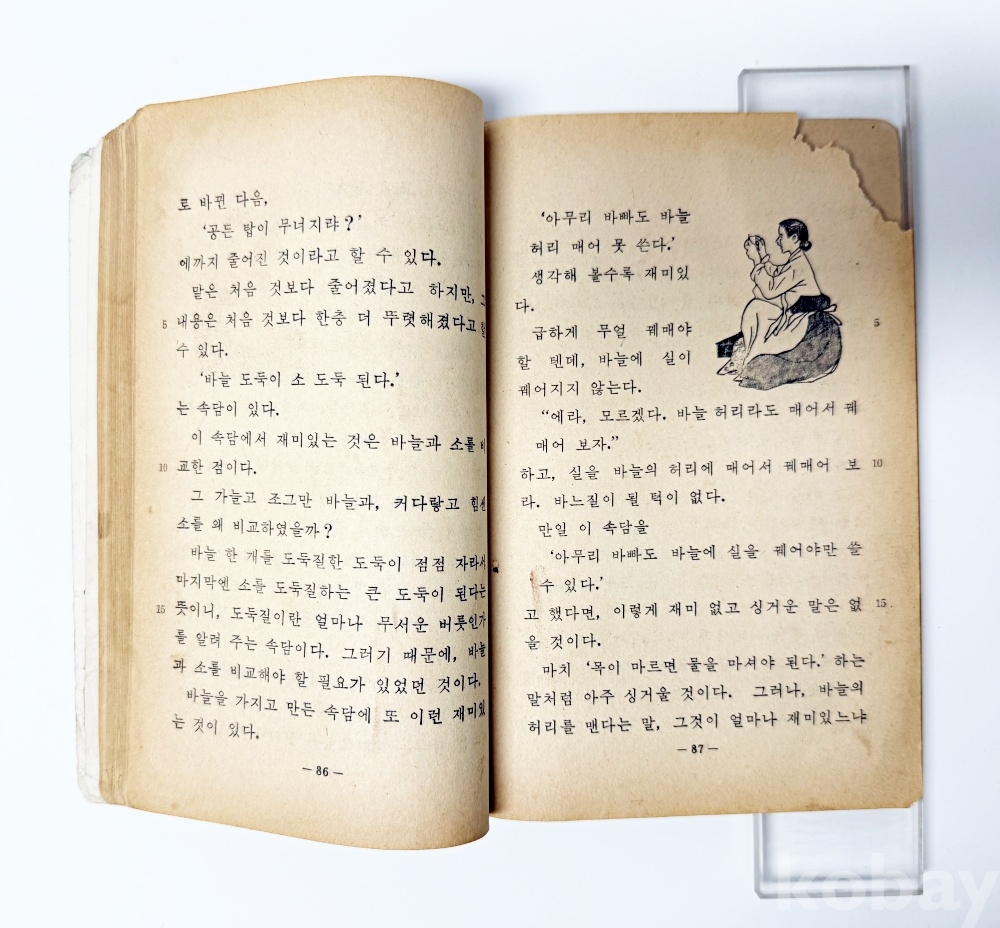 로 바뀐 다음,
‘공든 탑이 무너지랴?’
에까지 줄어진 것이라고 할 수 있다.
말은 처음 것보다 줄어졌다고 하지만, 그
5 내용은 처음 것보다 한층 더 뚜렷해졌다고 할
수 있다.
‘바늘 도둑이 소 도둑 된다.’
는 속담이 있다.
이 속담에서 재미있는 것은 바늘과 소를 비
10 교한 점이다.
그 가늘고 조그만 바늘과, 커다랗고 힘센
소를 왜 비교하였을까?
바늘 한 개를 도둑질한 도둑이 점점 자라서
마지막엔 소를 도둑질하는 큰 도둑이 된다는
15 뜻이니, 도둑질이란 얼마나 무서운 버릇인가
를 알려 주는 속담이다. 그러기 때문에, 바늘
과 소를 비교해야 할 필요가 있었던 것이다.
바늘을 가지고 만든 속담에 또 이런 재미있
는 것이 있다.
— 86 —
‘아무리 바빠도 바늘
허리 매어 못 쓴다.’
생각해 볼수록 재미있
다.
급하게 무얼 꿰매야 5
할 텐데, 바늘에 실이
꿰어지지 않는다.
“에라, 모르겠다. 바늘 허리라도 매어서 꿰
매어 보자.”
하고, 실을 바늘의 허리에 매어서 꿰매어 보 10
라. 바느질이 될 턱이 없다.
만일 이 속담을
‘아무리 바빠도 바늘에 실을 꿰어야만 쓸
수 있다.’
고 했다면, 이렇게 재미 없고 싱거운 말은 없 15
을 것이다.
마치 ‘목이 마르면 물을 마셔야 된다.’ 하는
말처럼 아주 싱거울 것이다. 그러나, 바늘의
허리를 맨다는 말, 그것이 얼마나 재미있느냐
— 87 —
kobay